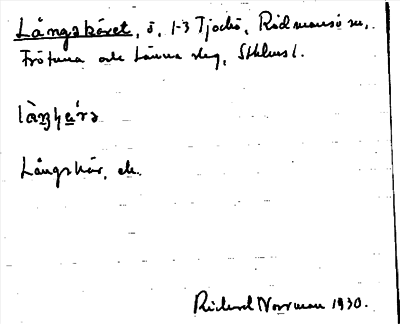 Långskäret, ö, 1-3 Tjockö, Rådmansö sn,
Frötuna och Länna skg, Sthlms l.
Långskär, ek.
Rickard Norrman 1930.